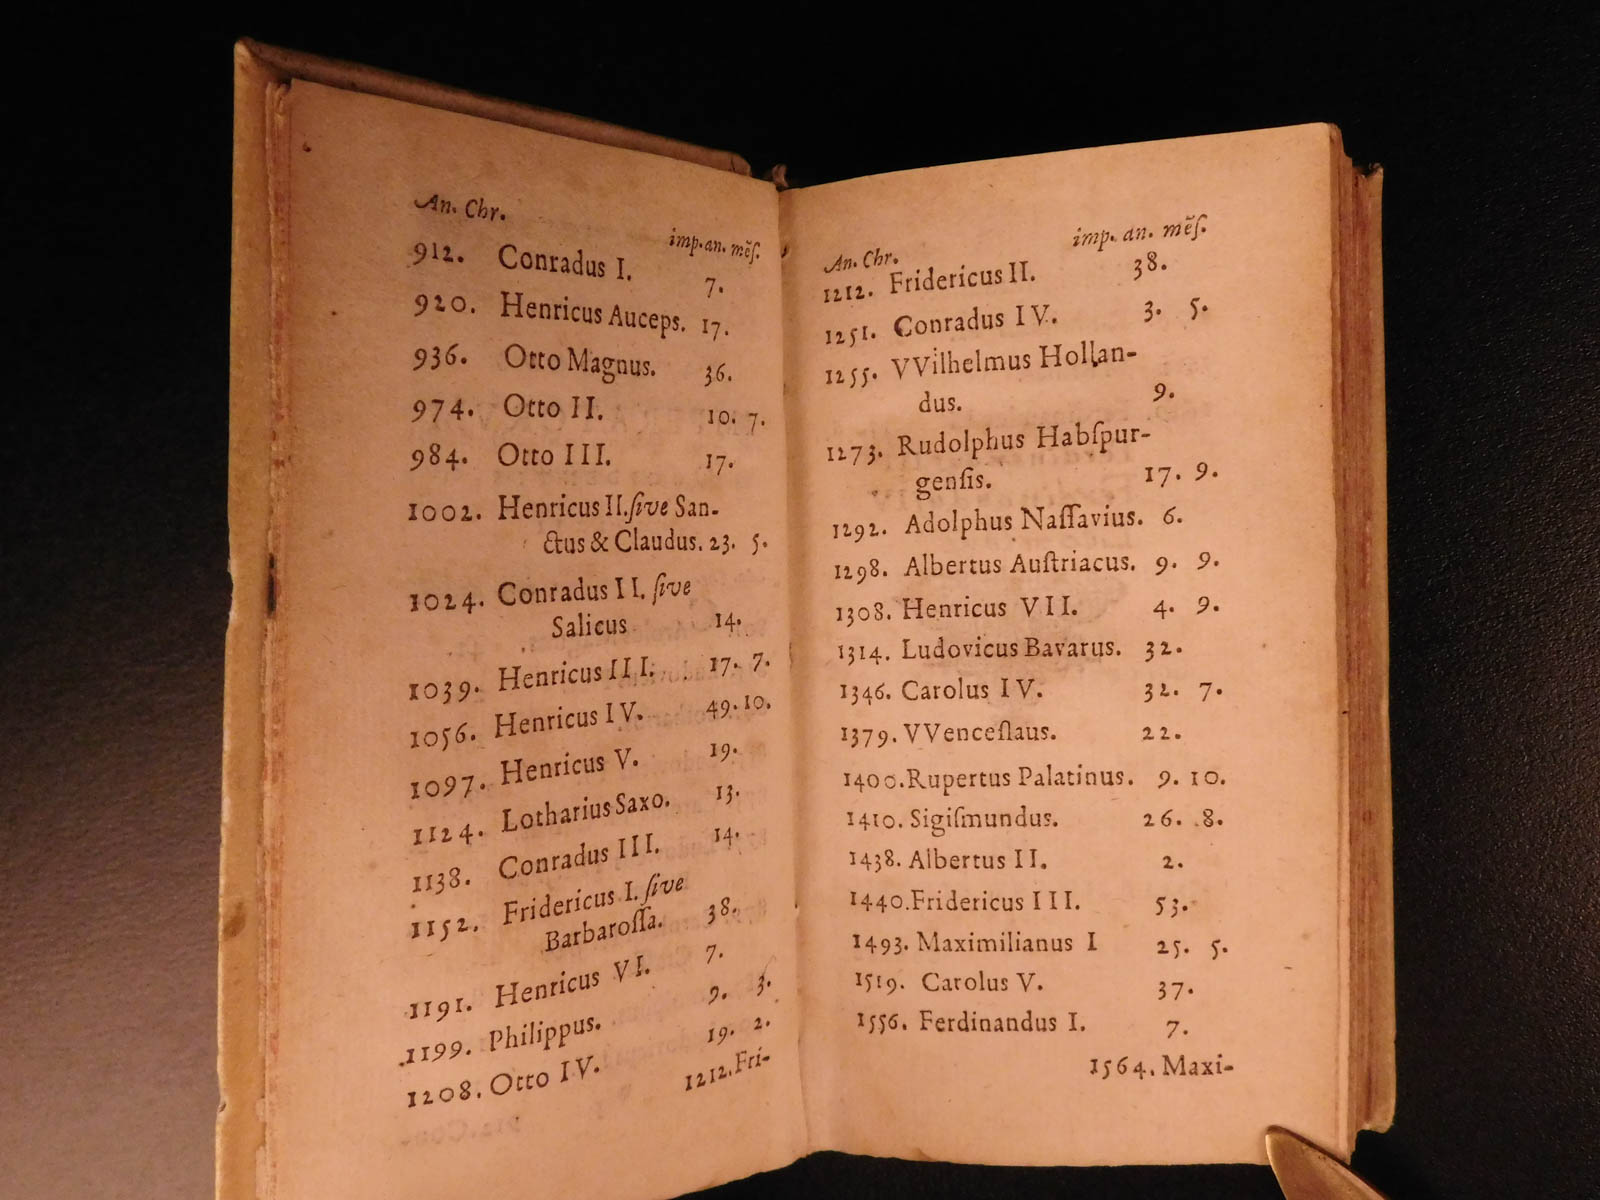 An. Chr.
imp. an. mẽſ.
912. Conradus I. 7.
920. Henricus Auceps. 17.
936. Otto Magnus. 36.
974. Otto II. 10. 7.
984. Otto III. 17.
1002. Henricus II. ſive San-
ctus & Claudus. 23. 5.
1024. Conradus II. ſive
Salicus 14.
1039. Henricus III. 17. 7.
1056. Henricus IV. 49. 10.
1097. Henricus V. 19.
1124. Lotharius Saxo. 13.
1138. Conradus III. 14.
1152. Fridericus I. ſive
Barbaroſſa. 38.
1191. Henricus VI. 7.
1199. Philippus. 9. 3.
1208. Otto IV. 19. 2.
1212. Fri-
An. Chr.
imp. an. mẽſ.
1212. Fridericus II. 38.
1251. Conradus IV. 3. 5.
1255. VVilhelmus Hollan-
dus. 9.
1273. Rudolphus Habſpur-
genſis. 17. 9.
1292. Adolphus Naſſavius. 6.
1298. Albertus Auſtriacus. 9. 9.
1308. Henricus VII. 4. 9.
1314. Ludovicus Bavarus. 32.
1346. Carolus IV. 32. 7.
1379. VVenceſlaus. 22.
1400. Rupertus Palatinus. 9. 10.
1410. Sigiſmundus. 26. 8.
1438. Albertus II. 2.
1440. Fridericus III. 53.
1493. Maximilianus I 25. 5.
1519. Carolus V. 37.
1556. Ferdinandus I. 7.
1564. Maxi-